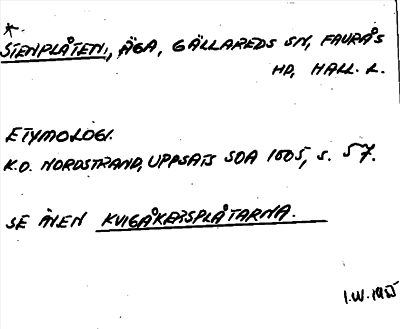 *
STENPLÅTEN, ÄGA, GÄLLAREDS SN, FAURÅS
HD, HALL. L.
ETYMOLOGI.
K.O. NORDSTRAND, UPPSATS SOA 1605, S. 57.
SE ÄVEN KVIGÅKERSPLÅTARNA.
I.W. 1955